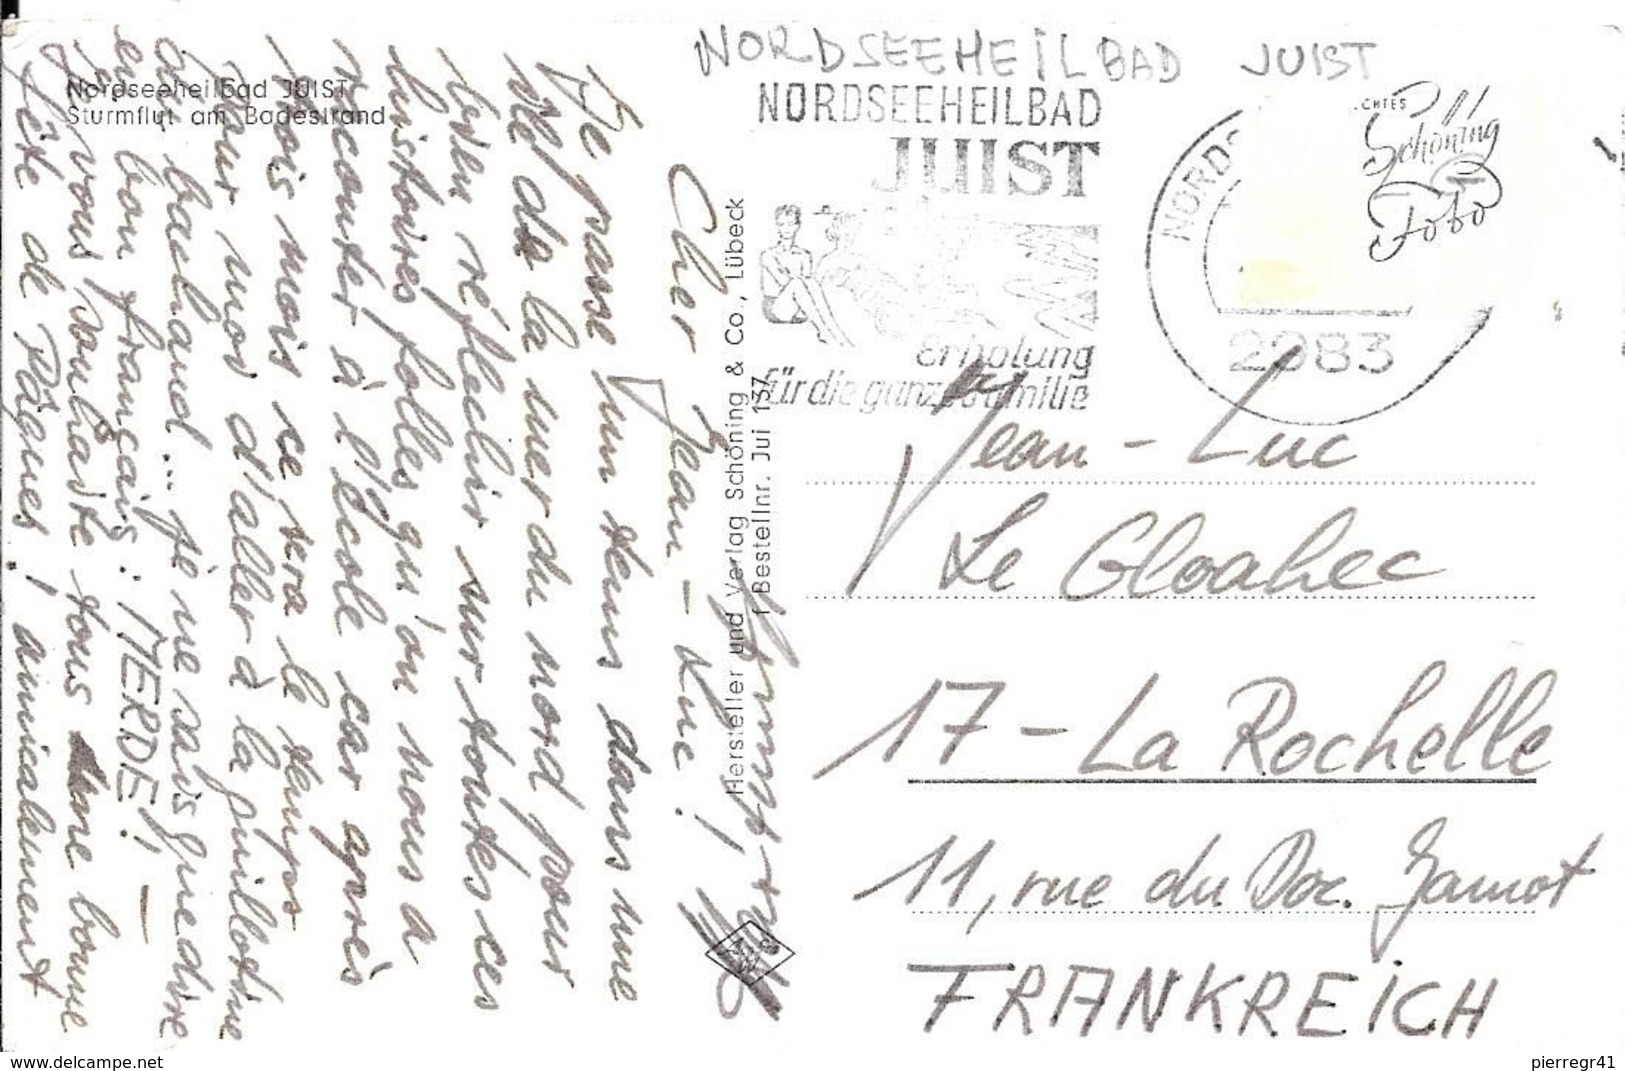 NORDSEEHEILBAD JUIST
NORDSEEHEILBAD
JUIST
Erholung
für die ganze Familie
NORDS
2983
CHTES
Schöning
Foto
Nordseeheilbad JUIST
Sturmflut am Badestrand
Hersteller und Verlag Schöning & Co., Lübeck
Bestellnr. Jui 137
Cher Jean-Luc !
Je passe un temps dans une
île de la mer du nord pour
bien réfléchir sur toutes ces
histoires folles qu'on nous a
raconter à l'école car après
trois mois ce sera le temps
pour moi d'aller à la guillotine
du bachaud... je ne sais que dire
en bon français : MERDE! —
Je vous souhaite tous une bonne
fête de Pâques ! amicalement
Jean-Luc
Le Gloahec
17 - La Rochelle
11, rue du Doc. Jamot
FRANKREICH
www.delcampe.net
pierregr41